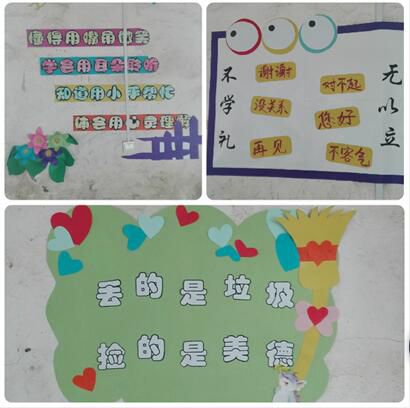 懂得用嘴角微笑
学会用耳朵聆听
知道用小手帮忙
体会用心灵理解
不学礼
无以立
谢谢
对不起
没关系
您好
再见
不客气
丢的是垃圾
捡的是美德